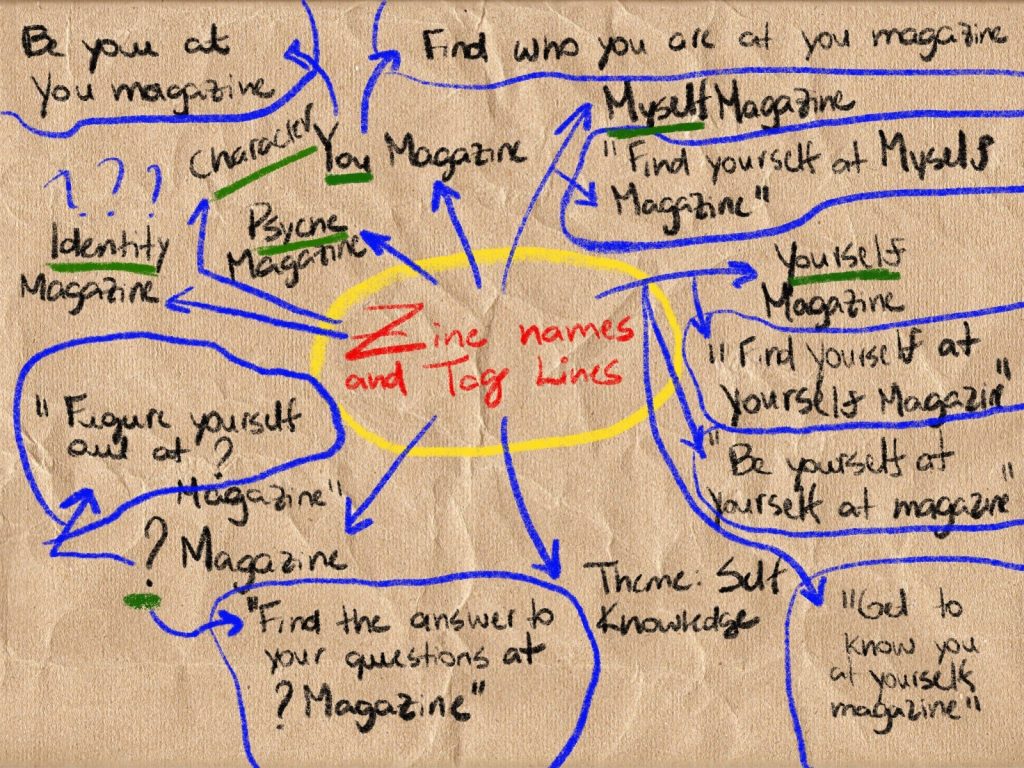 Be you at
You magazine
Find who you are at you magazine
Myself Magazine
"Find yourself at Myself
Magazine"
Character
You Magazine
Psyche
Magazine
???
Identity
Magazine
Yourself
Magazine
Zine names
and Tag Lines
"Find Yourself at
yourself Magazin"
"Be yourself at
yourself at magazine"
"Figure yourself
out at ?
Magazine"
? Magazine
"Find the answer to
your questions at
? Magazine"
Theme: Self
Knowledge
"Get to
know you
at yourself
magazine"